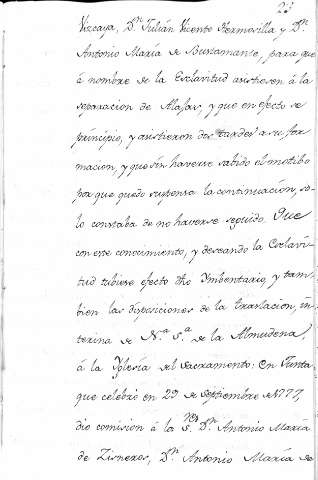 23
Vizcaya, Dn. Julián Vicente Hermosilla y Dn.
Antonio María de Bustamante, para que
á nombre de la Esclavitud asistiesen á la
separacion de Alajas, y que en efecto se
principio, y asistieron dos tardes a su for-
macion, y que sin haverse sabido el motibo
por que quedó suspensa la continuacion, so-
lo constaba de no haverse seguido. Que
con este conocimiento, y deseando la Esclavi-
tud tubiese efecto dho Ymbentario, y tam-
bien las disposiciones de la traslacion, in-
terina de N.a S.a de la Almudena,
á la Yglesia del Sacramento: en Junta
que celebró en 29 de Septiembre de 1777,
dió comision á los Sres. Dn. Antonio María
de Zisneros, Dn. Antonio María de